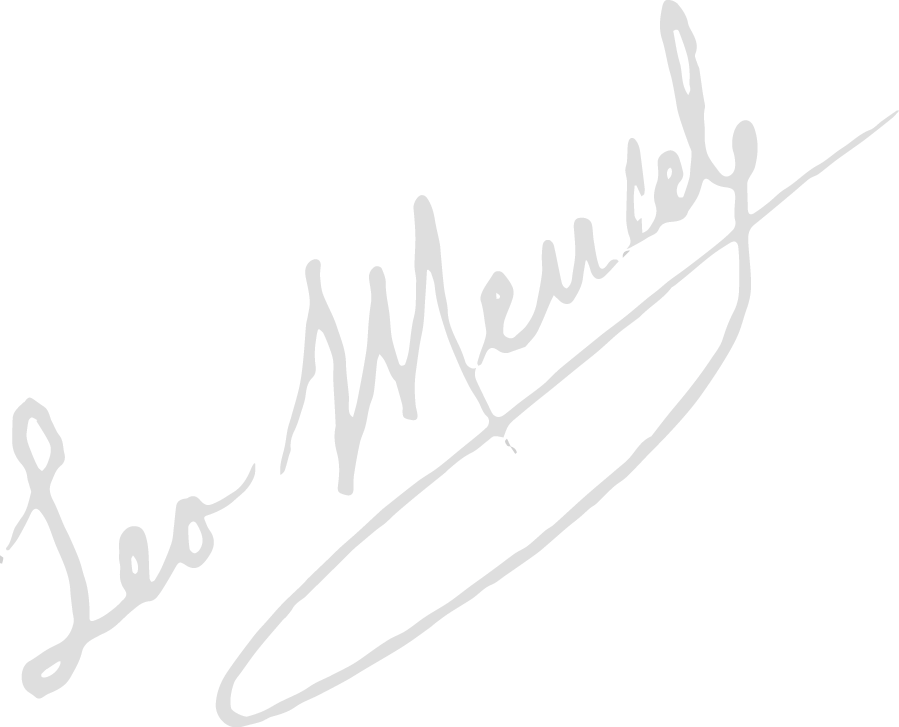 Leo Mencel